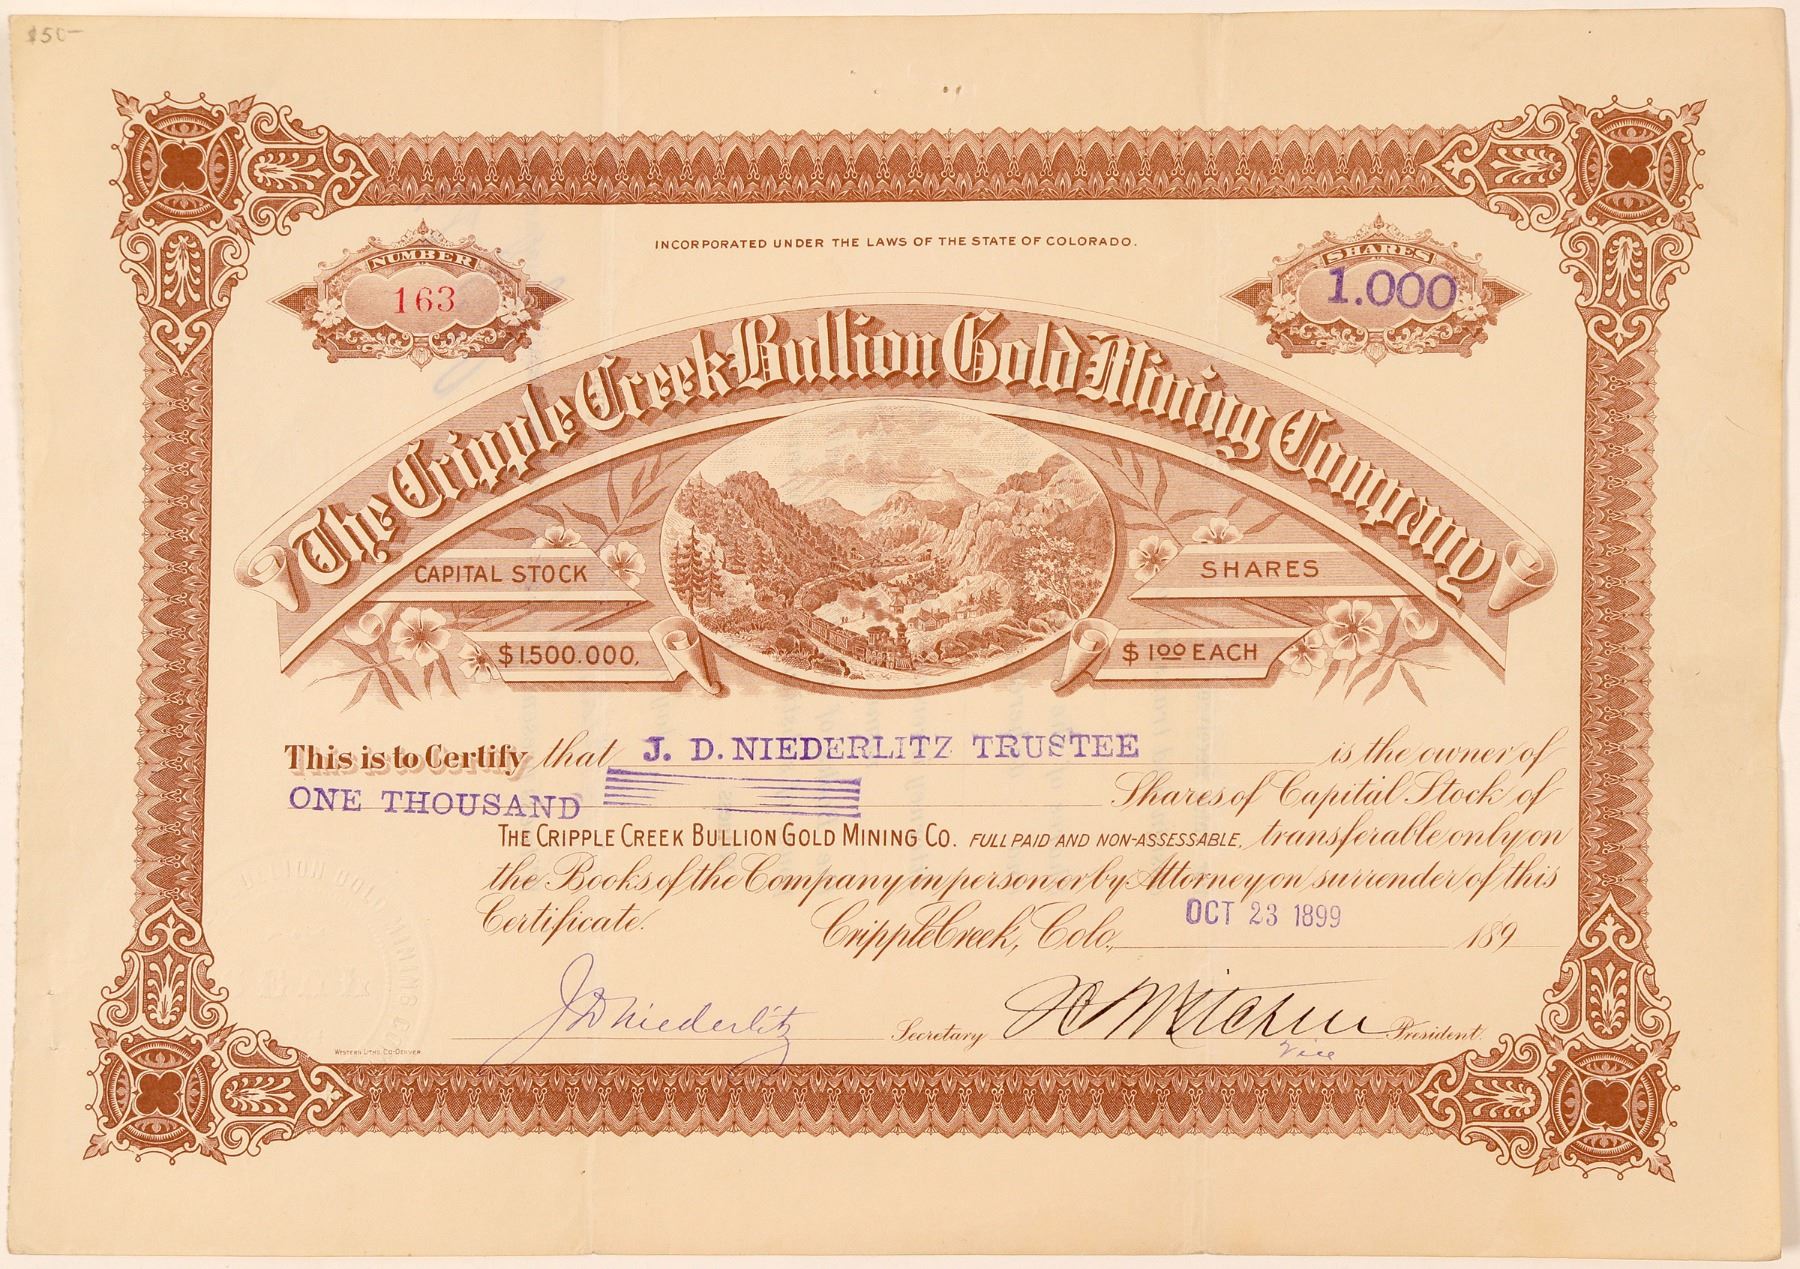 $50-
INCORPORATED UNDER THE LAWS OF THE STATE OF COLORADO.
NUMBER
163
SHARES
1.000
The Cripple Creek Bullion Gold Mining Company
CAPITAL STOCK
SHARES
$1.500.000.
$1.00 EACH
This is to Certify that J. D. NIEDERLITZ TRUSTEE is the owner of
ONE THOUSAND Shares of Capital Stock of
THE CRIPPLE CREEK BULLION GOLD MINING CO. FULL PAID AND NON-ASSESSABLE, transferable only on
the Books of the Company in person or by Attorney on surrender of this
Certificate. Cripple Creek, Colo., OCT 23 1899 189
J D Niederlitz Secretary President
Vice
WESTERN LITHO. CO-DENVER
BULLION GOLD MINING CO